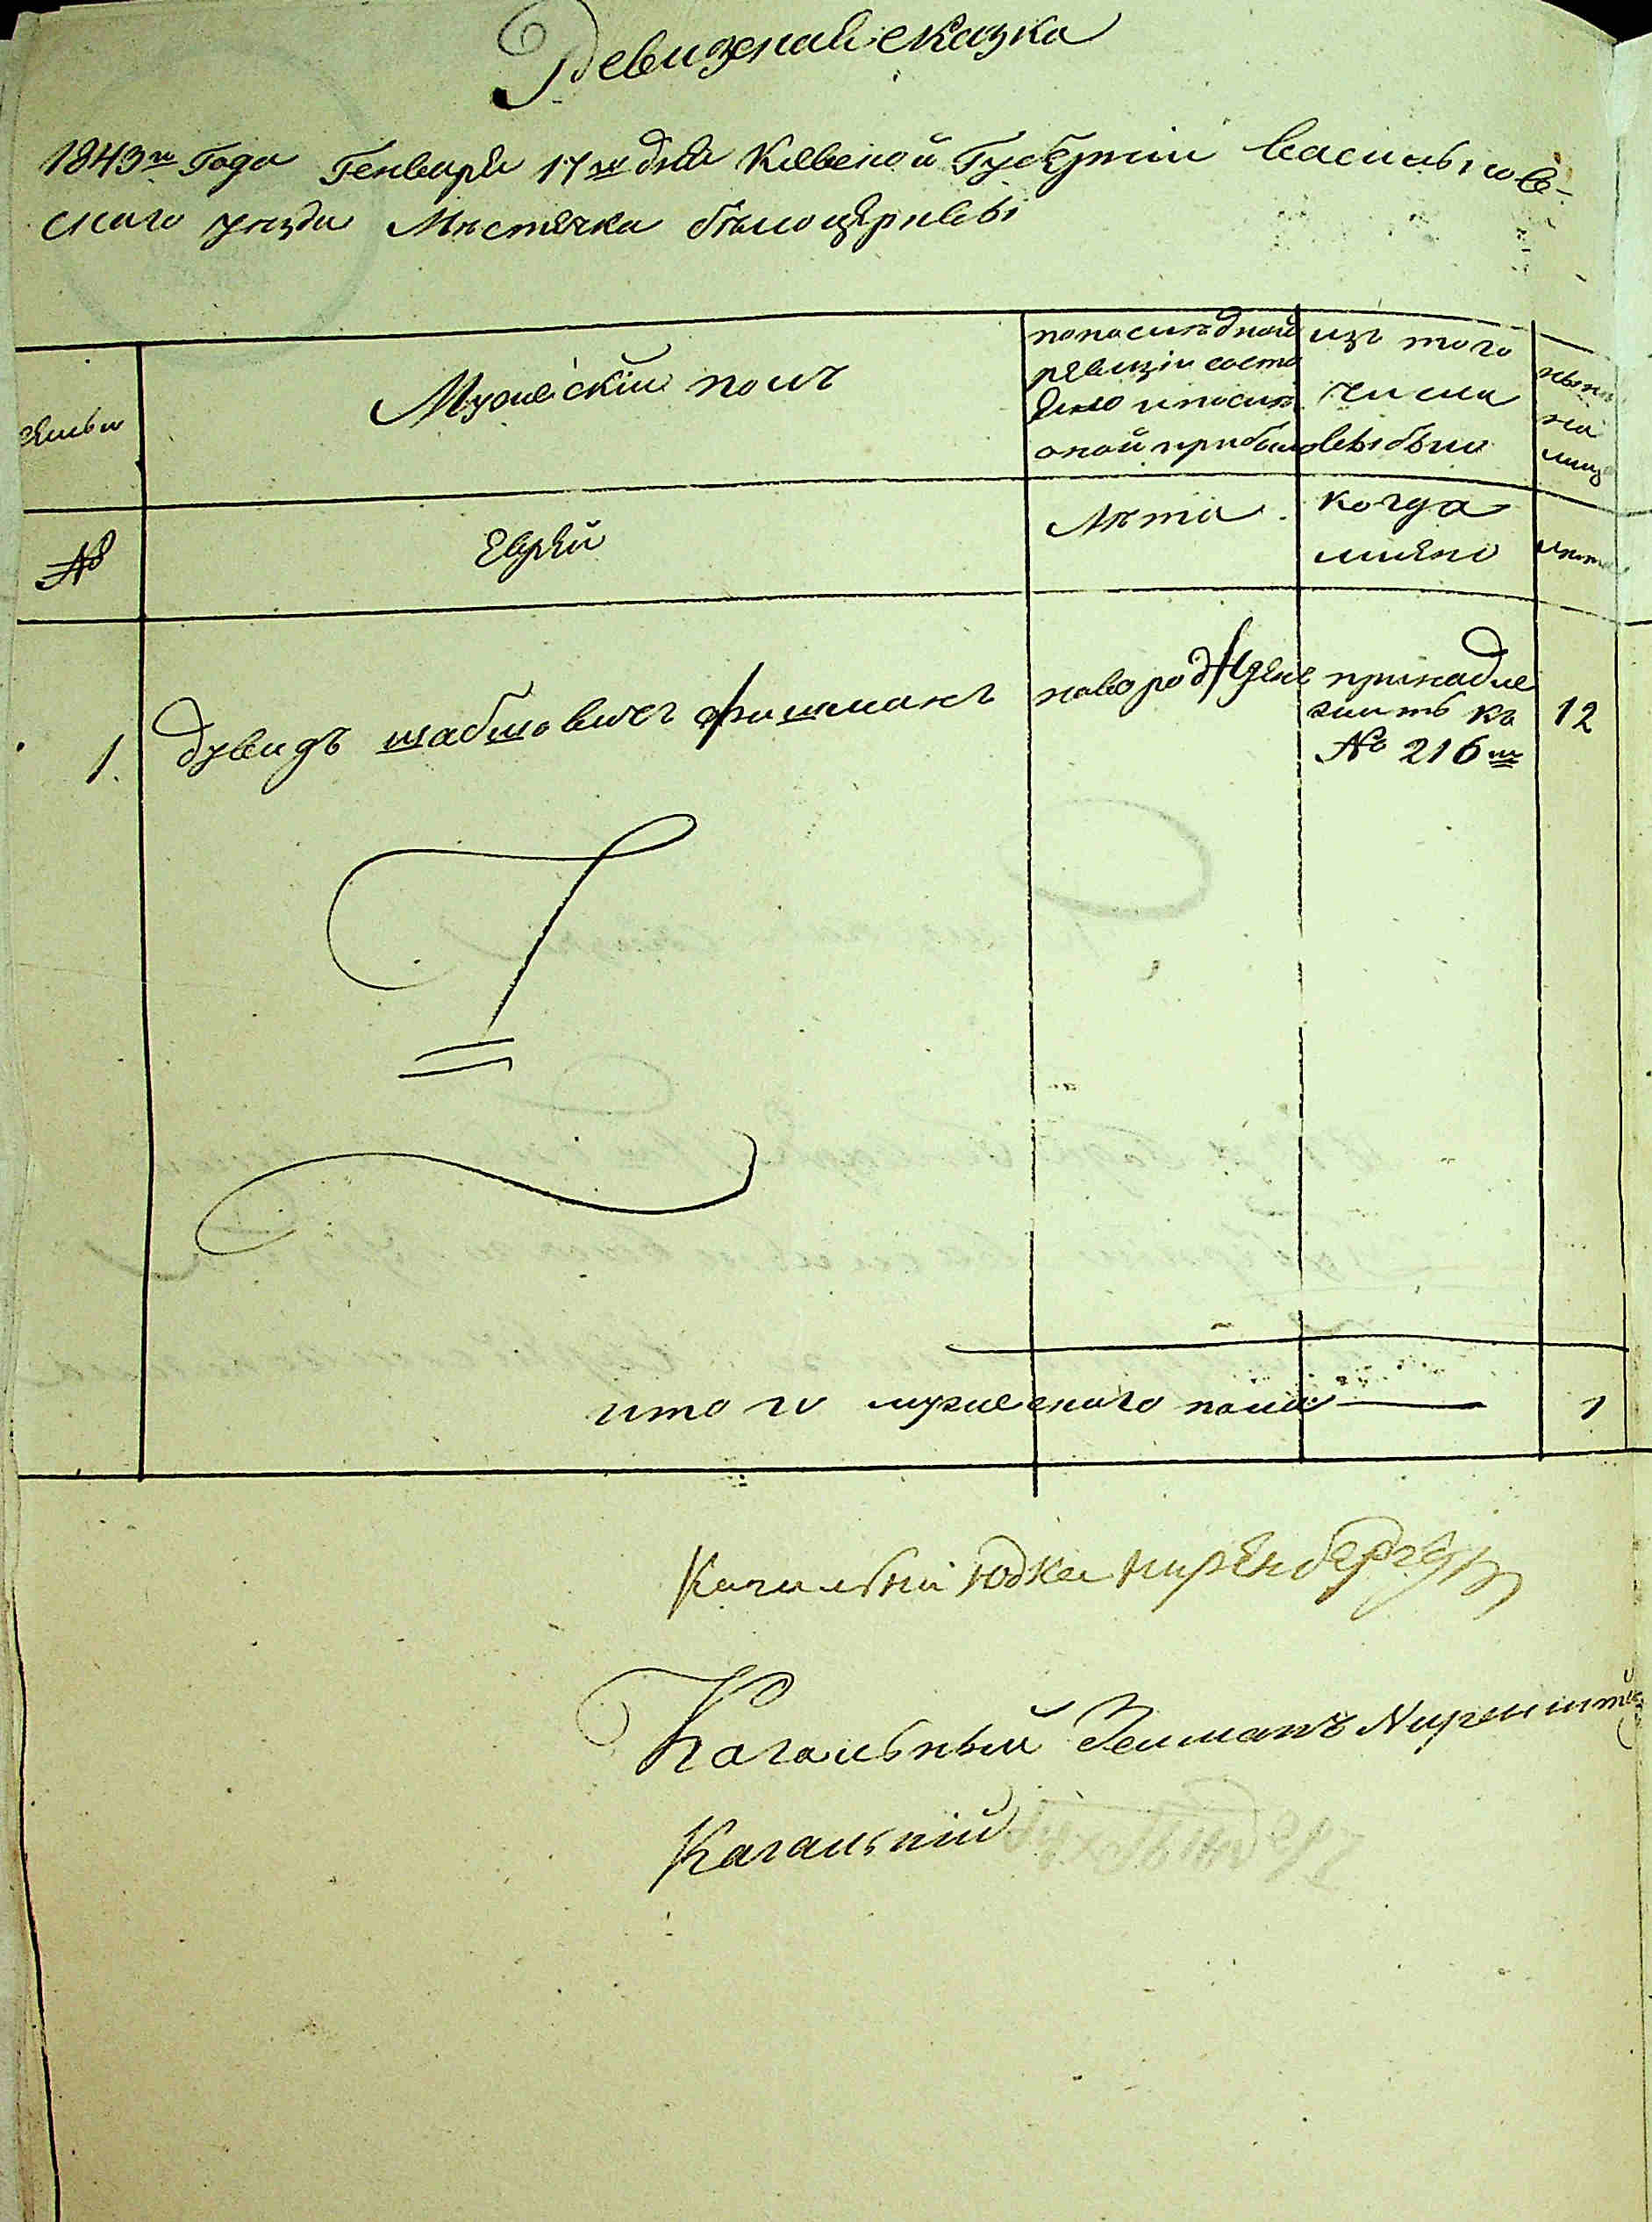 Ревизская сказка
1843го Года Генваря 17го дня Киевской Губерніи Васильков-
скаго уезда Местечка белоцерквы
семьи
Мужескій полъ
по последной
ревизіи состо
яло и после
оной прибыло
изъ того
числа
выбыли
ныне
на
лице
№
Еврей
Лета
когда
имено
лета
1.
дувидъ шабшовичъ фишманъ
новорожденъ
принадле
житъ къ
№ 216му
12
итого мужескаго пола
1
Кагальни Юдка Ниренберг
Кагальный Зельманъ
Кагальній